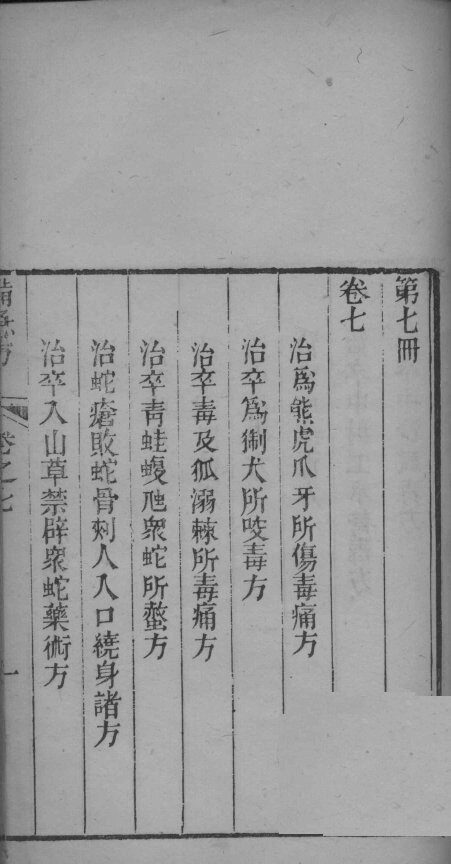 第七冊
卷七
治爲熊虎爪牙所傷毒痛方
治卒爲猘犬所咬毒方
治卒毒及狐溺棘所毒痛方
治卒青蛙蝮虺衆蛇所螫方
治蛇瘡敗蛇骨刺人入口繞身諸方
治卒入山草禁辟衆蛇藥術方
備急方
卷之七
一